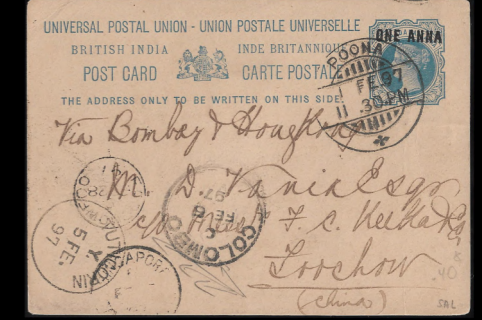 UNIVERSAL POSTAL UNION - UNION POSTALE UNIVERSELLE
BRITISH INDIA INDE BRITANNIQUE
POST CARD CARTE POSTALE
ONE ANNA
THE ADDRESS ONLY TO BE WRITTEN ON THIS SIDE.
POONA
1 FE. 97
11 30.PM
Via Bombay & Hongkong
M. D. Vania Esqr
F. C.
Foochow
(China)
COLOMBO
FE 6
97
5 FE.
97
.40